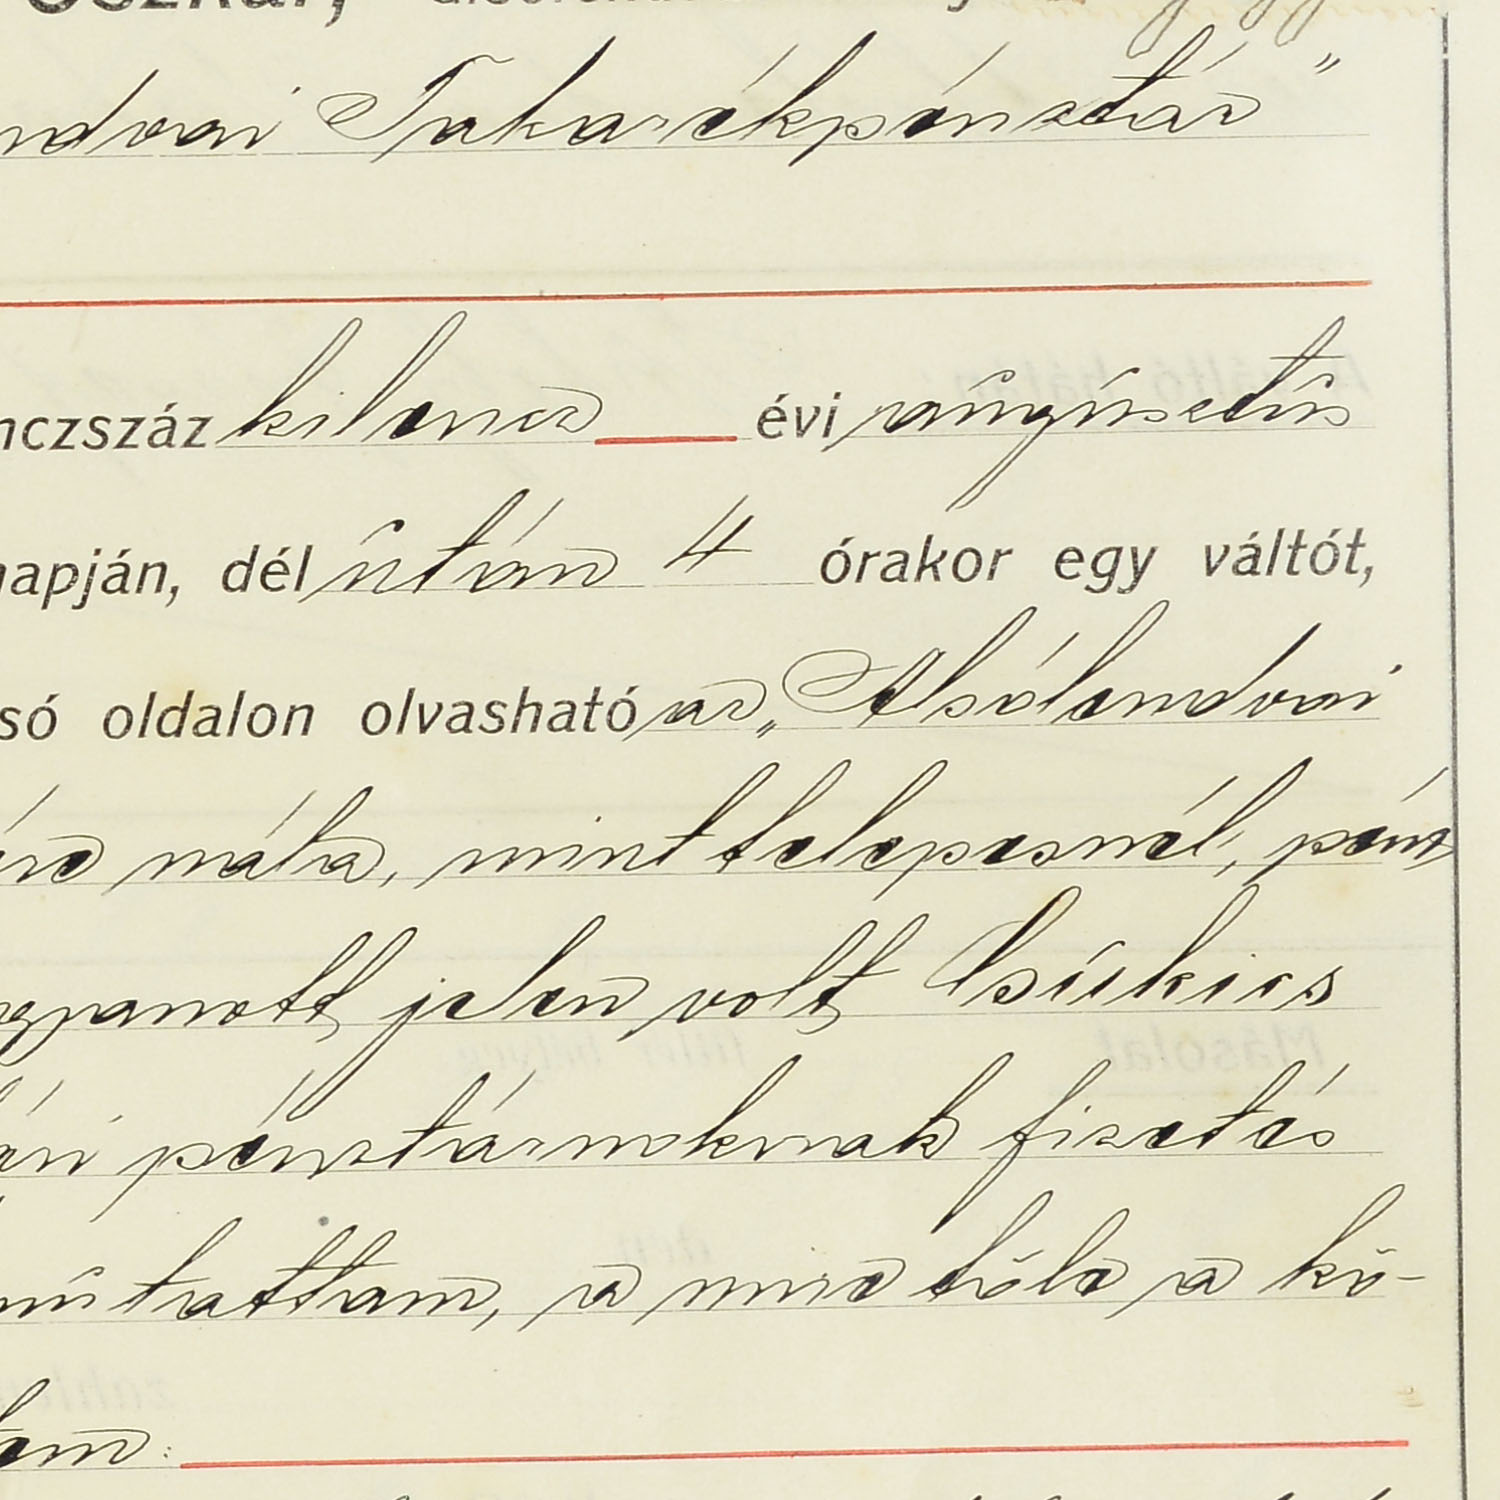 ndvai Takarékpénztár"
nczszáz kilencz évi augusztus
napján, dél után 4 órakor egy váltót,
só oldalon olvasható az „Alsólendvai
nála, mint telepesnél, pénz
ugyanott jelen volt Csukics
pénztárnoknak fizetés
mutattam, a mire tőle a kö-